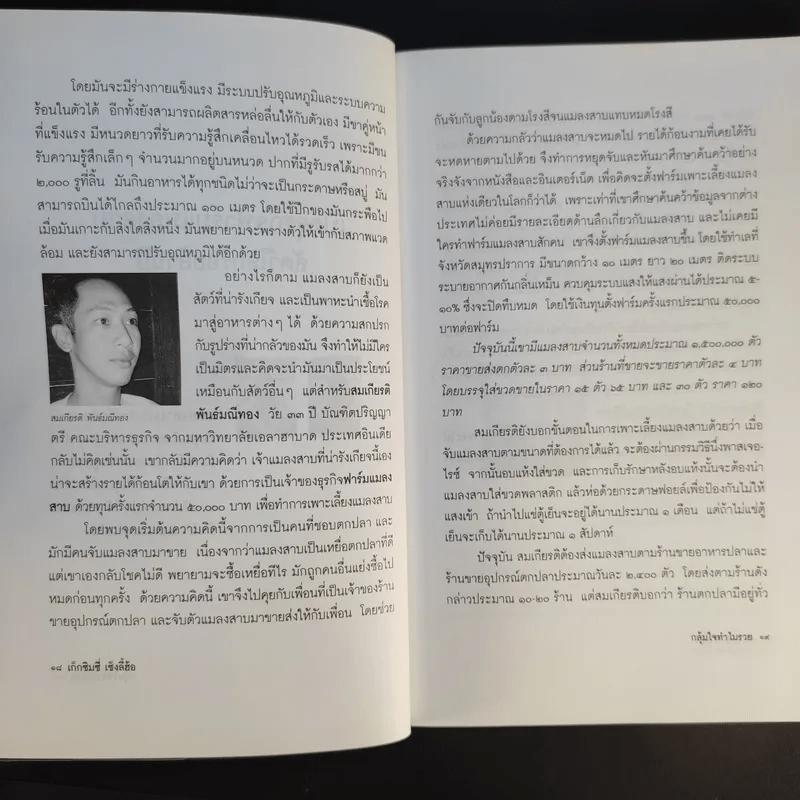 โดยมันจะมีร่างกายแข็งแรง มีระบบปรับอุณหภูมิและระบบความ
ร้อนในตัวได้ อีกทั้งยังสามารถผลิตสารหล่อลื่นให้กับตัวเอง มีขาคู่หน้า
ที่แข็งแรง มีหนวดยาวที่รับความรู้สึกเคลื่อนไหวได้รวดเร็ว เพราะมีขน
รับความรู้สึกเล็กๆ จำนวนมากอยู่บนหนวด ปากที่มีรูรับรสได้มากกว่า
๒,๐๐๐ รูที่ลิ้น มันกินอาหารได้ทุกชนิดไม่ว่าจะเป็นกระดาษหรือสบู่ มัน
สามารถบินได้ไกลถึงประมาณ ๑๐๐ เมตร โดยใช้ปีกของมันกระพือไป
เมื่อมันเกาะกับสิ่งใดสิ่งหนึ่ง มันพยายามจะพรางตัวให้เข้ากับสภาพแวด
ล้อม และยังสามารถปรับอุณหภูมิได้อีกด้วย
อย่างไรก็ตาม แมลงสาบก็ยังเป็น
สัตว์ที่น่ารังเกียจ และเป็นพาหะนำเชื้อโรค
มาสู่อาหารต่างๆ ได้ ด้วยความสกปรก
กับรูปร่างที่น่ากลัวของมัน จึงทำให้ไม่มีใคร
เป็นมิตรและคิดจะนำมันมาเป็นประโยชน์
เหมือนกับสัตว์อื่นๆ แต่สำหรับสมเกียรติ
พันธ์มณีทอง วัย ๓๓ ปี บัณฑิตปริญญา
สมเกียรติ พันธ์มณีทอง
ตรี คณะบริหารธุรกิจ จากมหาวิทยาลัยเอลาฮาบาด ประเทศอินเดีย
กลับไม่คิดเช่นนั้น เขากลับมีความคิดว่า เจ้าแมลงสาบที่น่ารังเกียจนี้เอง
น่าจะสร้างรายได้ก้อนโตให้กับเขา ด้วยการเป็นเจ้าของธุรกิจฟาร์มแมลง
สาบ ด้วยทุนครั้งแรกจำนวน ๕๐,๐๐๐ บาท เพื่อทำการเพาะเลี้ยงแมลงสาบ
โดยพบจุดเริ่มต้นความคิดนี้จากการเป็นคนที่ชอบตกปลา และ
มักมีคนจับแมลงสาบมาขาย เนื่องจากว่าแมลงสาบเป็นเหยื่อตกปลาที่ดี
แต่เขาเองกลับโชคไม่ดี พยายามจะซื้อเหยื่อทีไร มักถูกคนอื่นแย่งซื้อไป
หมดก่อนทุกครั้ง ด้วยความคิดนี้ เขาจึงไปคุยกับเพื่อนที่เป็นเจ้าของร้าน
ขายอุปกรณ์ตกปลา และจับตัวแมลงสาบมาขายส่งให้กับเพื่อน โดยช่วย
๑๘ เก็กซิมซี่ เซ็งลี้ฮ้อ
กันจับกับลูกน้องตามโรงสีจนแมลงสาบแทบหมดโรงสี
ด้วยความกลัวว่าแมลงสาบจะหมดไป รายได้ก้อนงามที่เคยได้รับ
จะหดหายตามไปด้วย จึงทำการหยุดจับและหันมาศึกษาค้นคว้าอย่าง
จริงจังจากหนังสือและอินเตอร์เน็ต เพื่อคิดจะตั้งฟาร์มเพาะเลี้ยงแมลง
สาบแห่งเดียวในโลกก็ว่าได้ เพราะเท่าที่เขาศึกษาค้นคว้าข้อมูลจากต่าง
ประเทศไม่ค่อยมีรายละเอียดด้านลึกเกี่ยวกับแมลงสาบ และไม่เคยมี
ใครทำฟาร์มแมลงสาบสักคน เขาจึงตั้งฟาร์มแมลงสาบขึ้น โดยใช้ทำเลที่
จังหวัดสมุทรปราการ มีขนาดกว้าง ๑๐ เมตร ยาว ๒๐ เมตร ติดระบบ
ระบายอากาศกันกลิ่นเหม็น ควบคุมระบบแสงให้แสงผ่านได้ประมาณ ๕-
๑๐% ซึ่งจะปิดทึบหมด โดยใช้เงินทุนตั้งฟาร์มครั้งแรกประมาณ ๕๐,๐๐๐
บาทต่อฟาร์ม
ปัจจุบันนี้เขามีแมลงสาบจำนวนทั้งหมดประมาณ ๑,๕๐๐,๐๐๐ ตัว
ราคาขายส่งตกตัวละ ๓ บาท ส่วนร้านที่ขายจะขายราคาตัวละ ๔ บาท
โดยบรรจุใส่ขวดขายในราคา ๑๕ ตัว ๖๕ บาท และ ๓๐ ตัว ราคา ๑๒๐
บาท
สมเกียรติยังบอกขั้นตอนในการเพาะเลี้ยงแมลงสาบด้วยว่า เมื่อ
จับแมลงสาบตามขนาดที่ต้องการได้แล้ว จะต้องผ่านกรรมวิธีนึ่งพาสเจอ-
ไรซ์ จากนั้นอบแห้งใส่ขวด และการเก็บรักษาหลังอบแห้งนั้นจะต้องนำ
แมลงสาบใส่ขวดพลาสติก แล้วห่อด้วยกระดาษฟอยล์เพื่อป้องกันไม่ให้
แสงเข้า ถ้านำไปแช่ตู้เย็นจะอยู่ได้นานประมาณ ๑ เดือน แต่ถ้าไม่แช่ตู้
เย็นจะเก็บได้นานประมาณ ๑ สัปดาห์
ปัจจุบัน สมเกียรติต้องส่งแมลงสาบตามร้านขายอาหารปลาและ
ร้านขายอุปกรณ์ตกปลาประมาณวันละ ๒,๔๐๐ ตัว โดยส่งตามร้านดัง
กล่าวประมาณ ๑๐-๒๐ ร้าน แต่สมเกียรติบอกว่า ร้านตกปลามีอยู่ทั่ว
กลุ้มใจทำไมรวย ๑๙